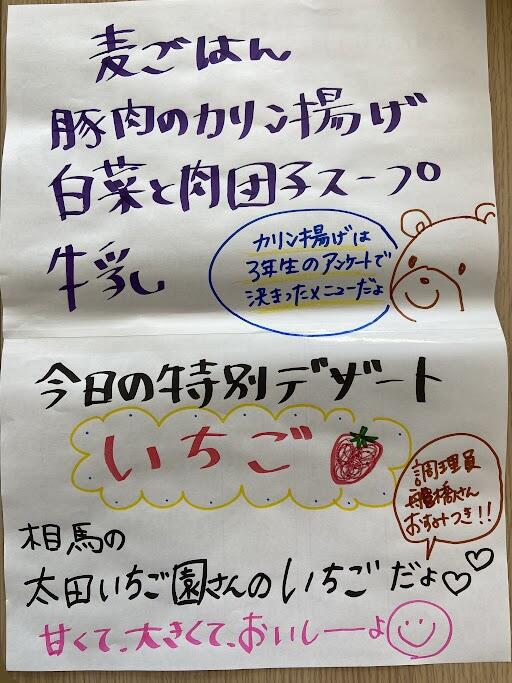 麦ごはん
豚肉のカリン揚げ
白菜と肉団子スープ
牛乳
カリン揚げは
3年生のアンケートで
決まったメニューだよ
今日の特別デザート
いちご
調理員
船橋さん
おすみつき!!
相馬の
太田いちご園さんのいちごだよ♡♡
甘くて、大きくて、おいしーーよ